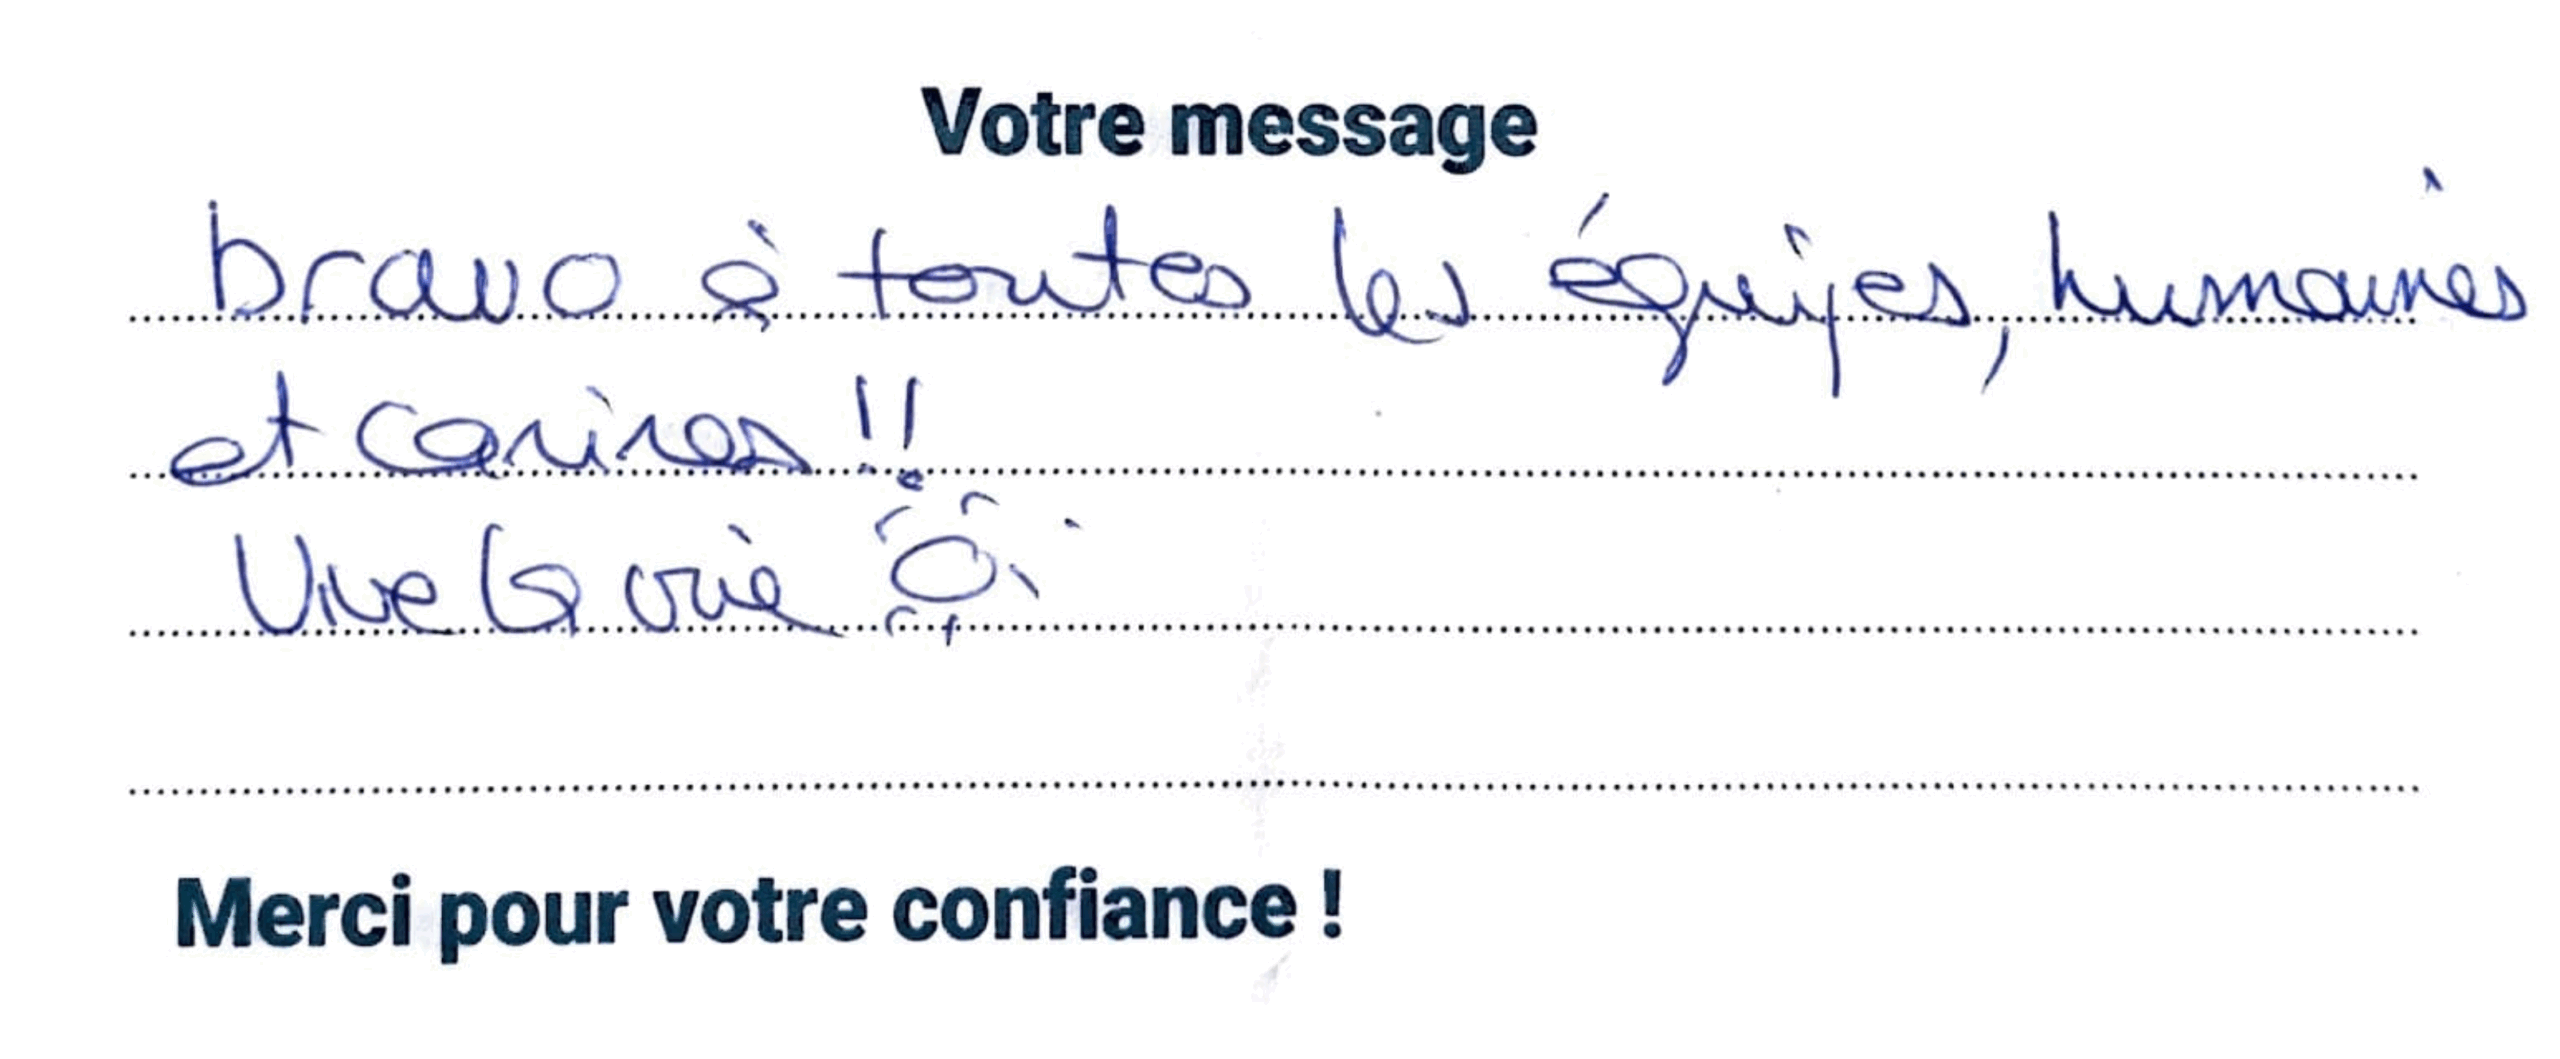 Votre message
bravo à toutes les équipes, humaines
et canines !!
Vive la vie
Merci pour votre confiance !